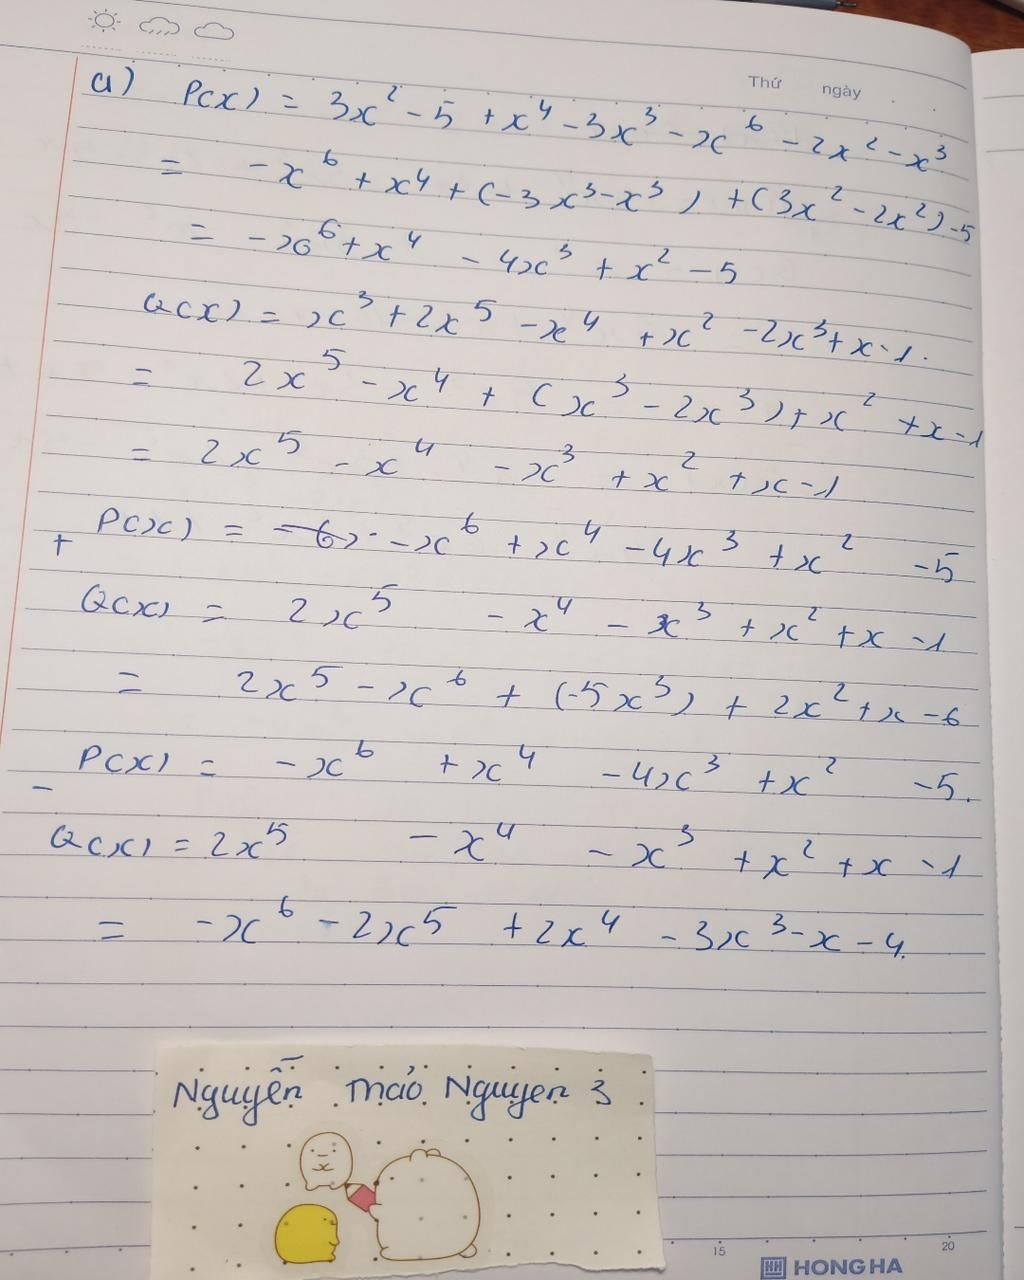 Thứ ngày
a) P(x) = 3x² - 5 + x⁴ - 3x³ - x⁶ - 2x² - x³
= -x⁶ + x⁴ + (-3x³ - x³) + (3x² - 2x²) - 5
= -x⁶ + x⁴ - 4x³ + x² - 5
Q(x) = x³ + 2x⁵ - x⁴ + x² - 2x³ + x - 1.
= 2x⁵ - x⁴ + (x³ - 2x³) + x² + x - 1
= 2x⁵ - x⁴ - x³ + x² + x - 1
P(x) = -x⁶ + x⁴ - 4x³ + x² - 5
+
Q(x) = 2x⁵ - x⁴ - x³ + x² + x - 1
= 2x⁵ - x⁶ + (-5x³) + 2x² + x - 6
P(x) = -x⁶ + x⁴ - 4x³ + x² - 5.
-
Q(x) = 2x⁵ - x⁴ - x³ + x² + x - 1
= -x⁶ - 2x⁵ + 2x⁴ - 3x³ - x - 4.
Nguyễn Thảo Nguyen 3
15 20
HH HONG HA